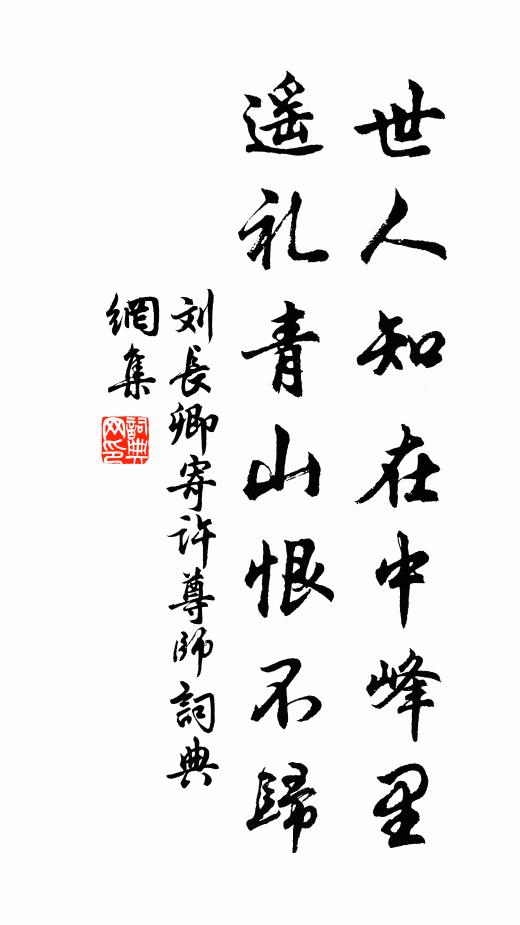 世人知在中峰里
遥礼青山恨不歸
刘長卿寄许尊師詞典
網集
詞典
网印